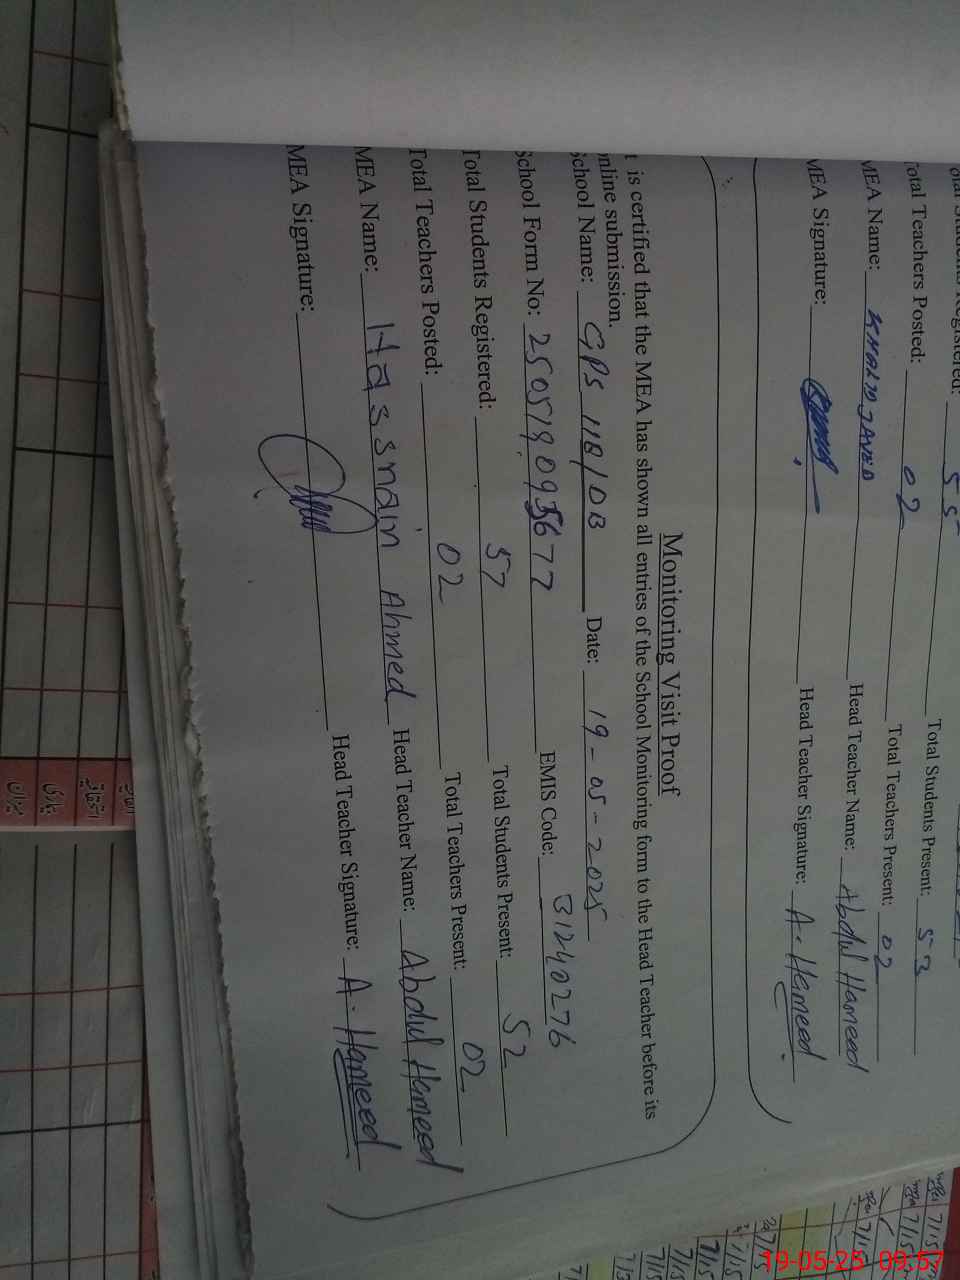 Total Students Present: 53
Total Teachers Posted: 02 Total Teachers Present: 02
MEA Name: KHALID JAVED Head Teacher Name: Abdul Hameed
MEA Signature: Head Teacher Signature: A. Hameed
Monitoring Visit Proof
t is certified that the MEA has shown all entries of the School Monitoring form to the Head Teacher before its
nline submission.
School Name: GPS 118/DB Date: 19-05-2025
School Form No: EMIS Code: 31240276
Total Students Registered: 57 Total Students Present: 52
Total Teachers Posted: 02 Total Teachers Present: 02
MEA Name: Hassnain Ahmed Head Teacher Name: Abdul Hameed
MEA Signature: Head Teacher Signature: A. Hameed
19-05-25 09:57